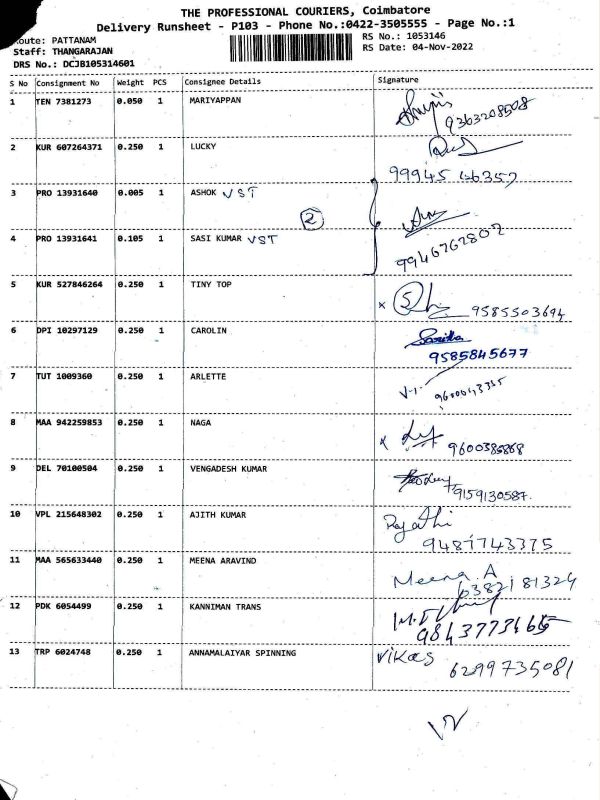 THE PROFESSIONAL COURIERS, Coimbatore
Delivery Runsheet - P103 - Phone No.:0422-3505555 - Page No.:1
oute: PATTANAM
Staff: THANGARAJAN
DRS No.: DCJB105314601
RS No.: 1053146
RS Date: 04-Nov-2022
S No Consignment No Weight PCS Consignee Details Signature
1 TEN 7381273 0.050 1 MARIYAPPAN
9363208508
2 KUR 607264371 0.250 1 LUCKY
99945 46357
3 PRO 13931640 0.005 1 ASHOK VST
2
4 PRO 13931641 0.105 1 SASI KUMAR VST
9946762802
5 KUR 527846264 0.250 1 TINY TOP
x 5 9585503694
6 DPI 10297129 0.250 1 CAROLIN
9585845677
7 TUT 1009360 0.250 1 ARLETTE
8 MAA 942259853 0.250 1 NAGA
x 9600385868
9 DEL 70100504 0.250 1 VENGADESH KUMAR
9159130587.
10 VPL 215648302 0.250 1 AJITH KUMAR
Rajathi
9487743375
11 MAA 565633440 0.250 1 MEENA ARAVIND
Meena A
6382181324
12 PDK 6054499 0.250 1 KANNIMAN TRANS
13 TRP 6024748 0.250 1 ANNAMALAIYAR SPINNING
Vikas
6299735081